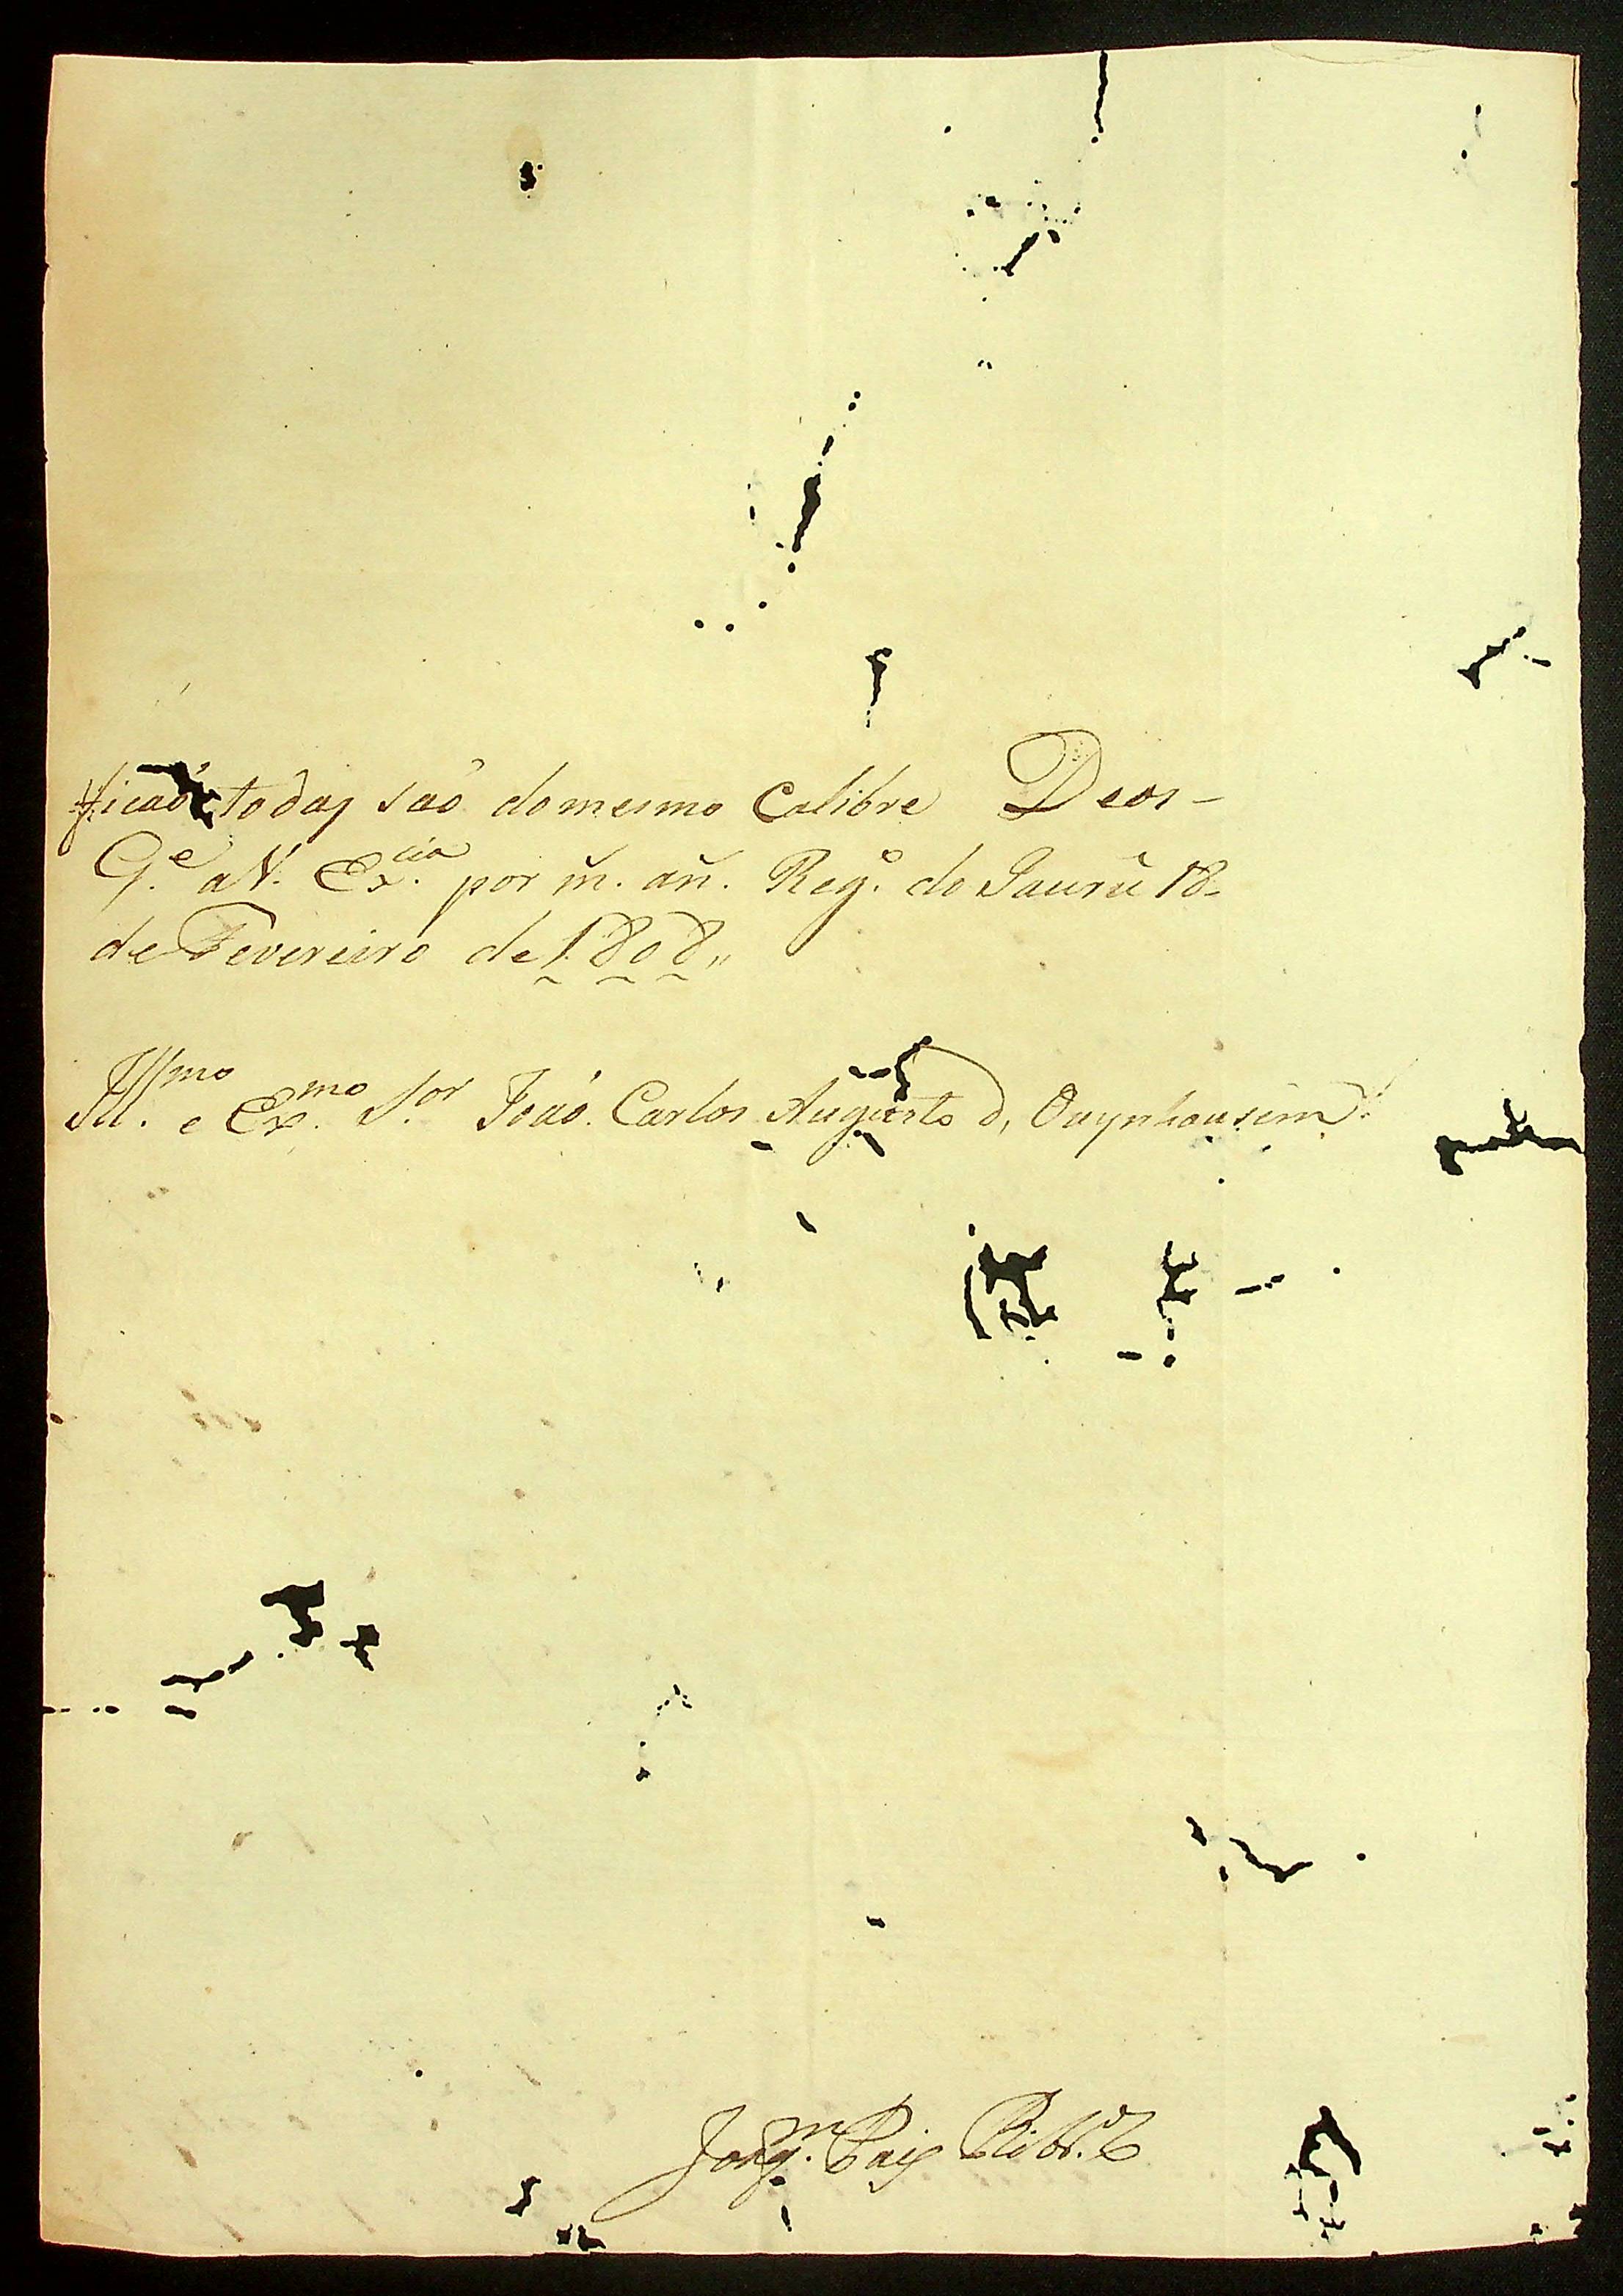 ficaõ todas saõ do mesmo Calibre Deos-
G.e a V. Ex.cia por m̃. añ. Reg.o do Jaurú 18-
de Fevereiro de 1808,,
Ill.mo e Ex.mo S.or João Carlos Augusto d, Oaynhausem
Joaq.m Paiz Rib.